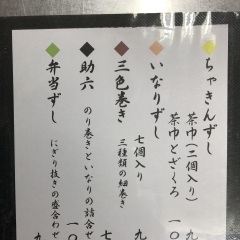 ちゃきんずし
茶巾(二個入り) 九
茶巾とざくろ 一〇
いなりずし
七個入り 九
三色巻き
三種類の細巻き 七
助六
のり巻きといなりの詰合せ 一〇
弁当ずし
にぎり抜きの盛合わせ 九